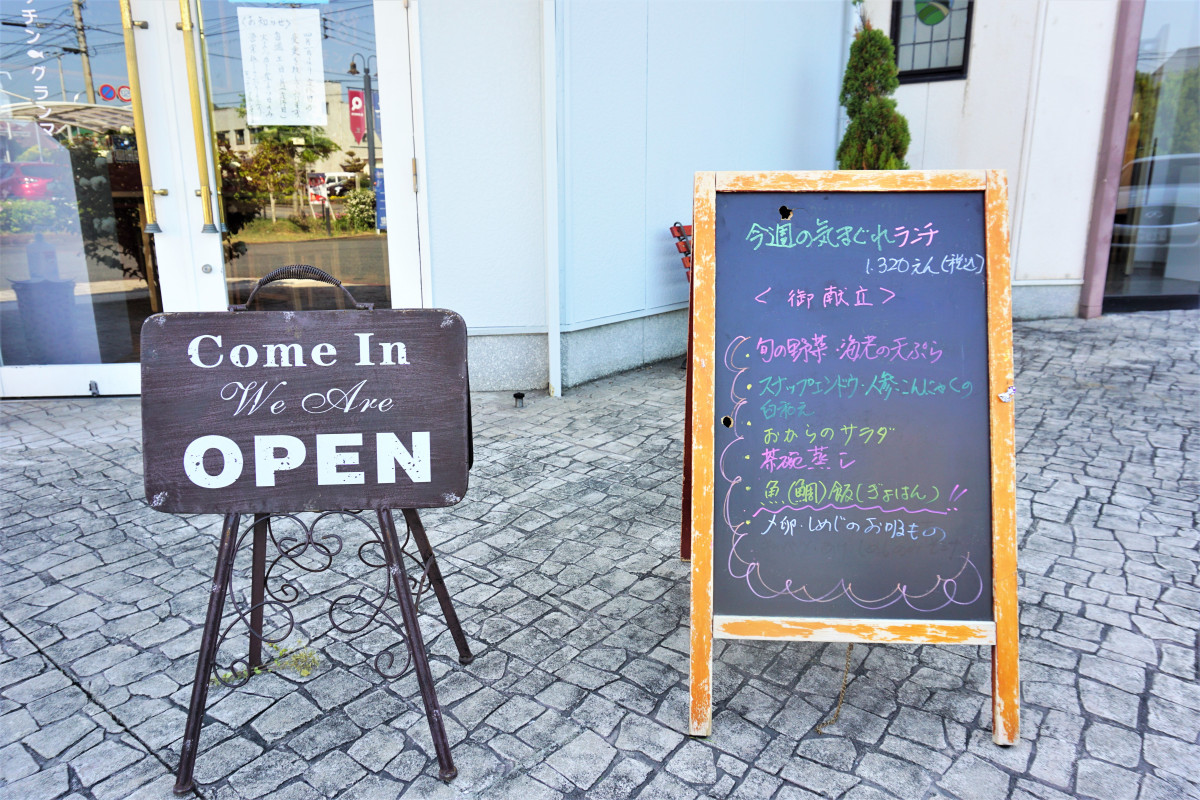 チン グランマ
お知らせ
Come In
We Are
OPEN
今週の気まぐれランチ
1.320えん(税込)
<御献立>
・旬の野菜・海老の天ぷら
・スナップエンドウ・人参・こんにゃくの
白和え
・おからのサラダ
・茶碗蒸し
・魚(鯛)飯(ぎょはん)!!
・〆卵・しめじのお吸もの